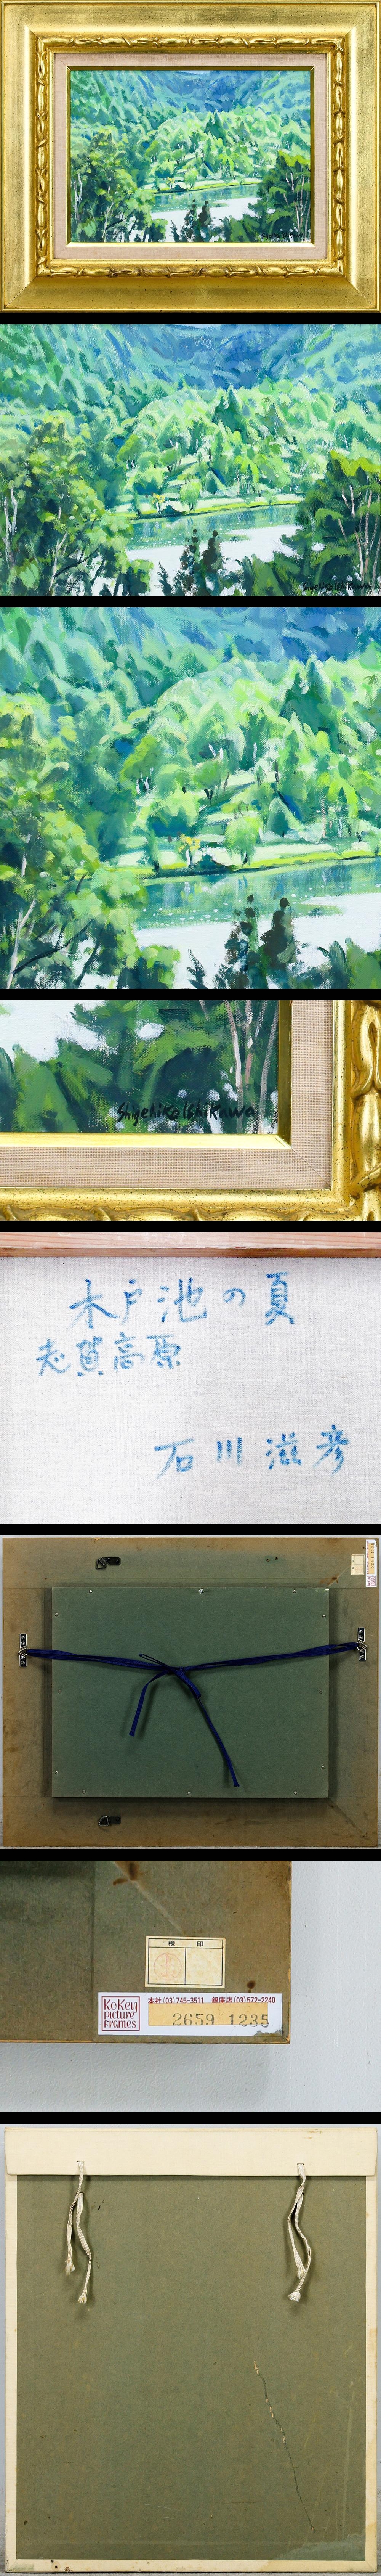 Shigehiko Ishikawa
Shigehiko Ishikawa
Shigehiko Ishikawa
木戸池の夏
志賀高原
石川 滋彦
検 印
KoKey
picture
frames
本社(03)745-3511 銀座店(03)572-2240
2659 1235